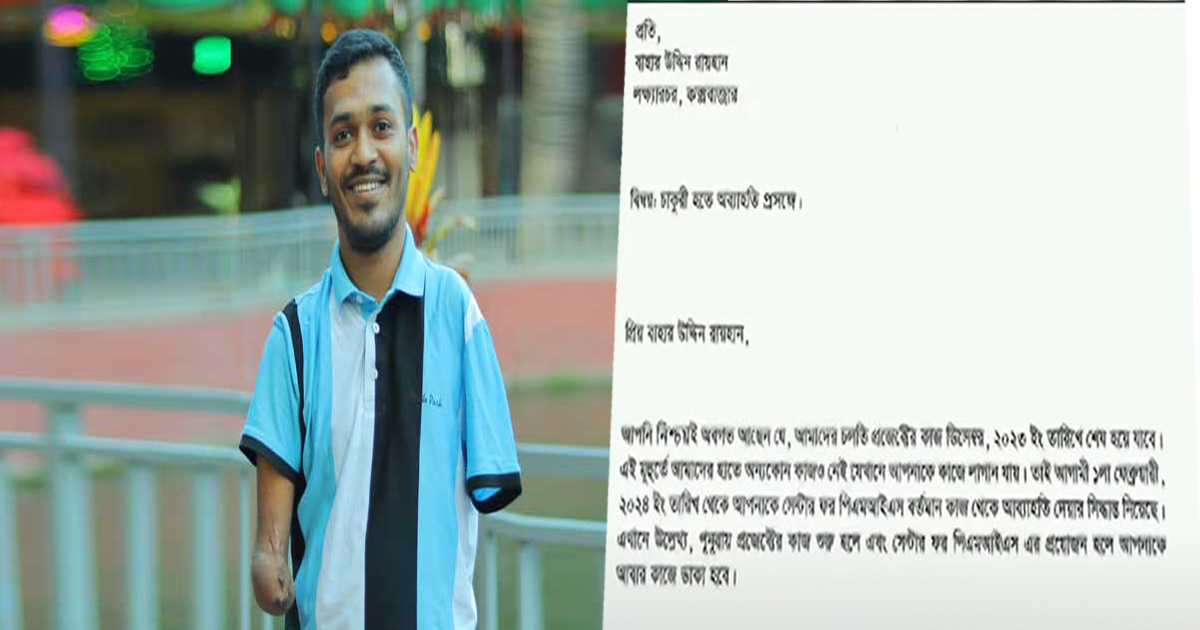 প্রতি,
বাহার উদ্দিন রায়হান
লক্ষ্যারচর, কক্সবাজার
বিষয়: চাকুরী হতে অব্যাহতি প্রসঙ্গে।
প্রিয় বাহার উদ্দিন রায়হান,
আপনি নিশ্চয়ই অবগত আছেন যে, আমাদের চলতি প্রজেক্টের কাজ ডিসেম্বর, ২০২৩ ইং তারিখে শেষ হয়ে যাবে।
এই মূহুর্তে আমাদের হাতে অন্যকোন কাজও নেই যেখানে আপনাকে কাজে লাগান যায়। তাই আগামী ১লা ফেব্রুয়ারী,
২০২৪ ইং তারিখ থেকে আপনাকে সেন্টার ফর পিএমআইএস বর্তমান কাজ থেকে আব্যাহতি দেয়ার সিদ্ধান্ত নিয়েছে।
এখানে উল্লেখ্য, পুনুরায় প্রজেক্টের কাজ শুরু হলে এবং সেন্টার ফর পিএমআইএস এর প্রয়োজন হলে আপনাকে
আবার কাজে ডাকা হবে।